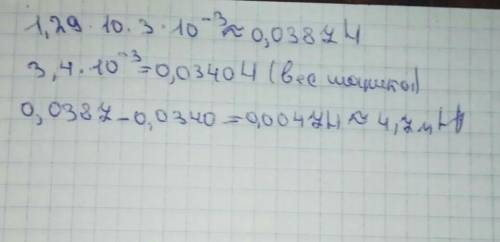 1,29 · 10 · 3 · 10⁻³ ≈ 0,0387 Н
3,4 · 10⁻³ = 0,0340 Н (вес шарика)
0,0387 - 0,0340 = 0,0047 Н ≈ 4,7 мН